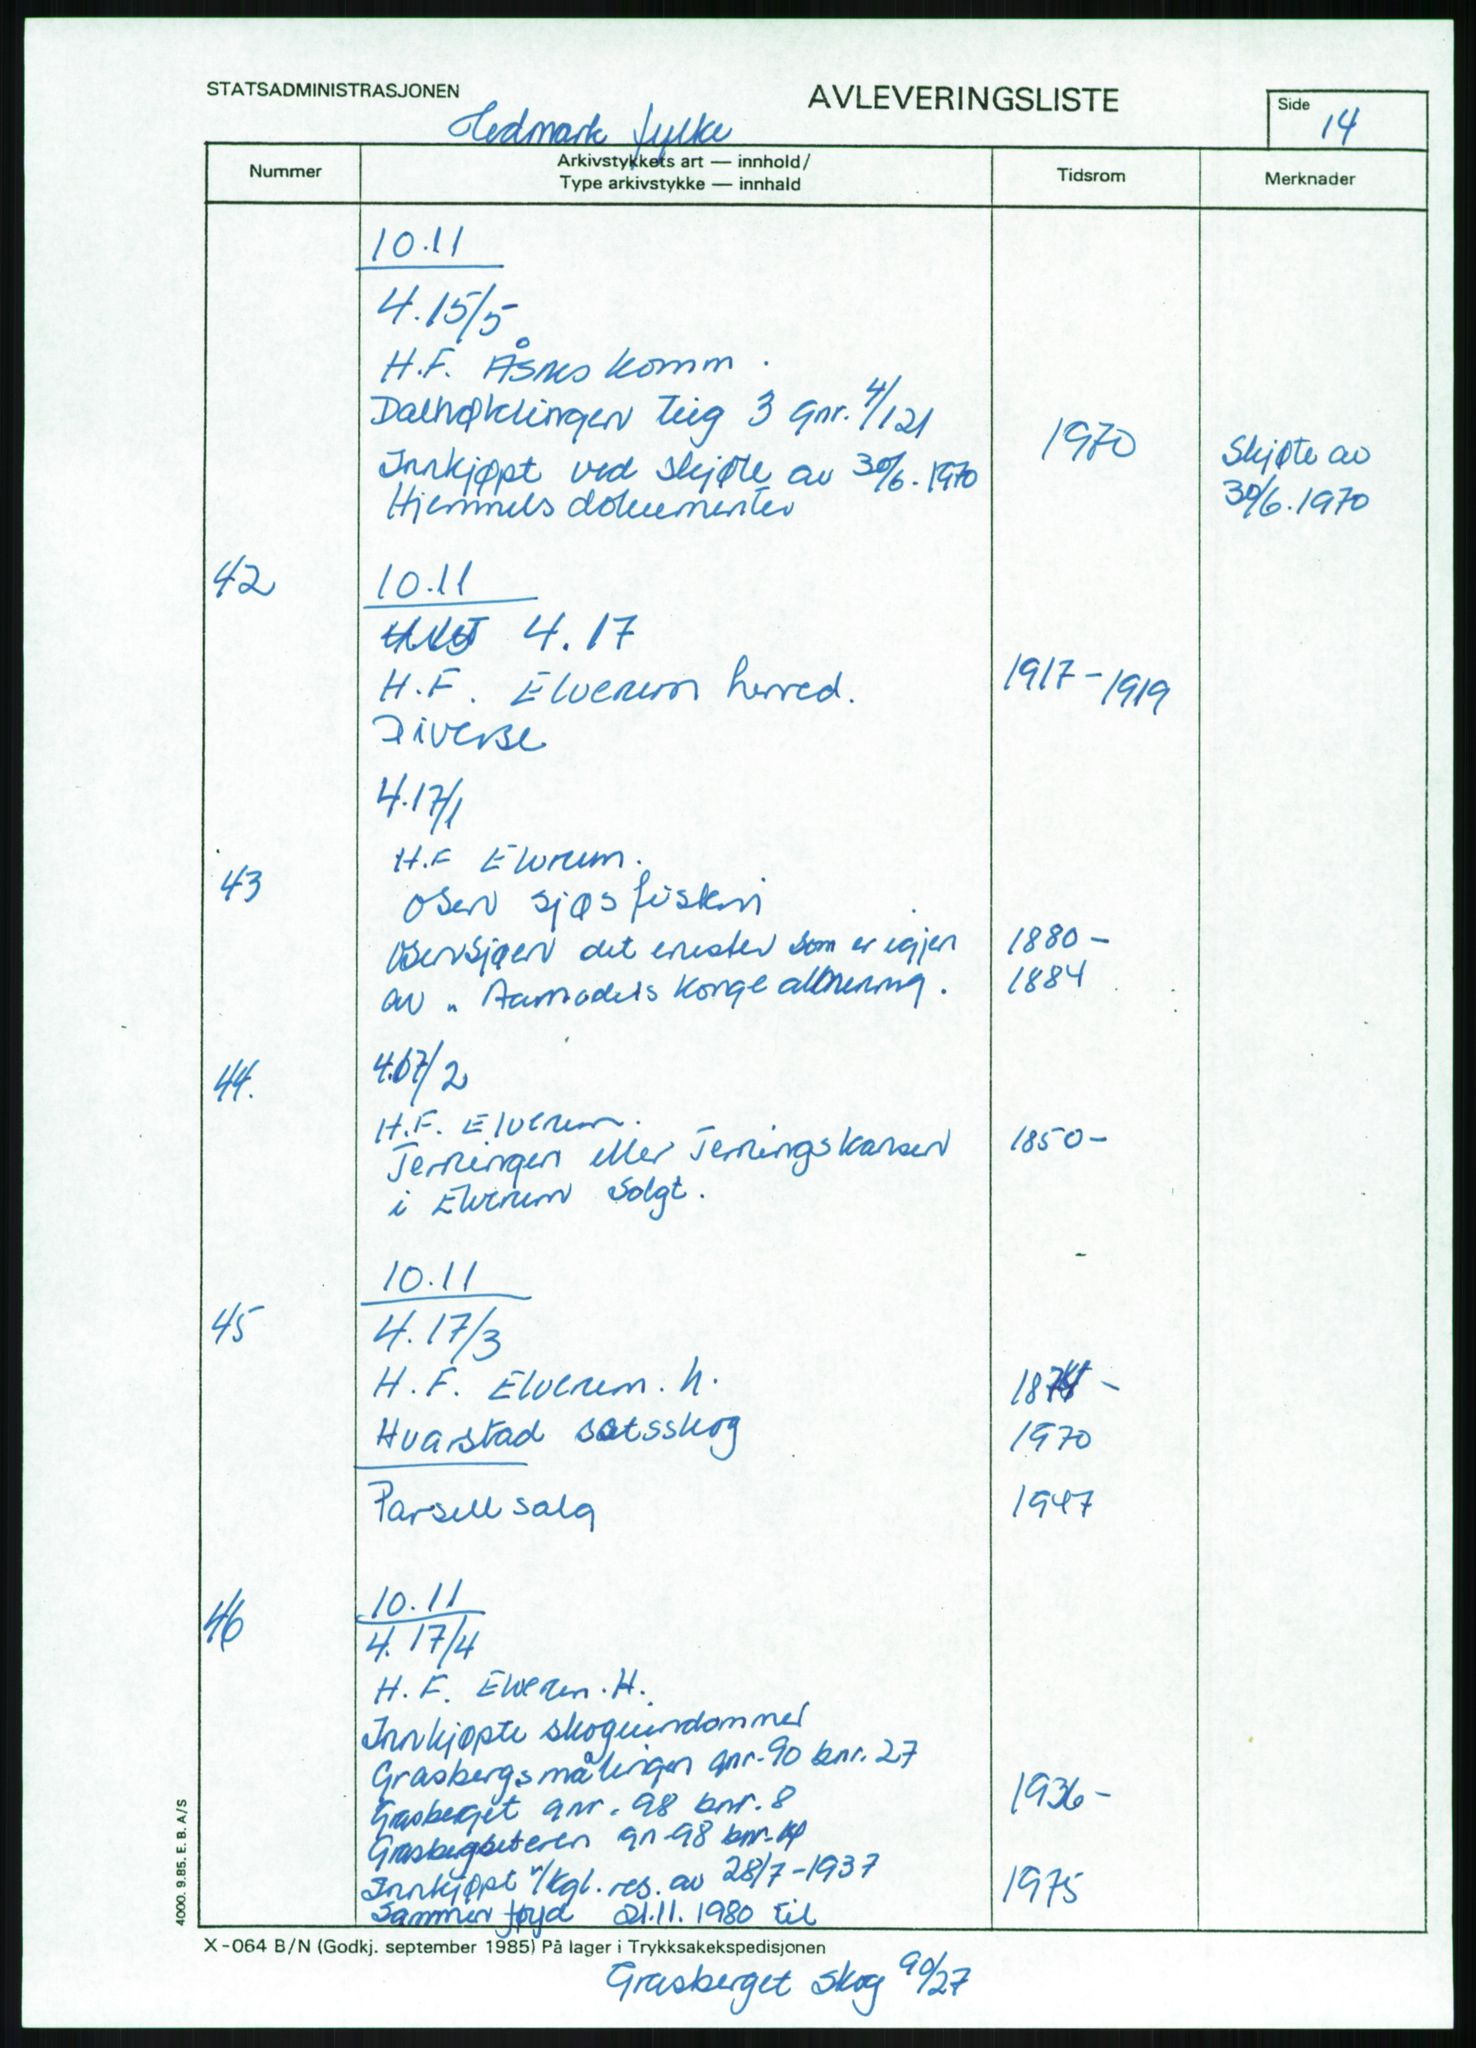 STATSADMINISTRASJONEN
AVLEVERINGSLISTE
Side
14
Hedmark fylke
Nummer
Arkivstykkets art — innhold/
Type arkivstykke — innhald
Tidsrom
Merknader
10.11
4.15/5
H.F. Åsnes komm.
Teig 3 gnr. 4/121
1970
Innkjøpt ved skjøte av 30/6.1970
Skjøte av
30/6.1970
Hjemmelsdokumenter
42
10.11
4.17
H.F. Elverum herred.
1917-1919
Diverse
4.17/1
43
H.F Elverum.
Osen sjøs fiskeri
Osensjøen det eneste som er igjen
1880-
av „ Aamodts Konge allmenning.
1884
44.
4.17/2
H.F. Elverum.
Terningen eller Terningskansen
1850-
i Elverum solgt.
10.11
45
4.17/3
H.F. Elverum. h.
Hvarstad satsskog
1970
Parsell salg
1947
46
10.11
4.17/4
H.F. Elverum. H.
Innkjøpte skogeiendommer
Grasbergsmålingen gnr. 90 bnr. 27
Grasberget gnr. 98 bnr. 8
1936-
Grasbergseteren gn 98 bnr.
Innkjøpt v/kgl. res. av 28/7-1937
1975
Sammenføyd 21.11.1980 til
4000. 9.85. E. B. A/S
X-064 B/N (Godkj. september 1985) På lager i Trykksakekspedisjonen
Grasberget skog 90/27